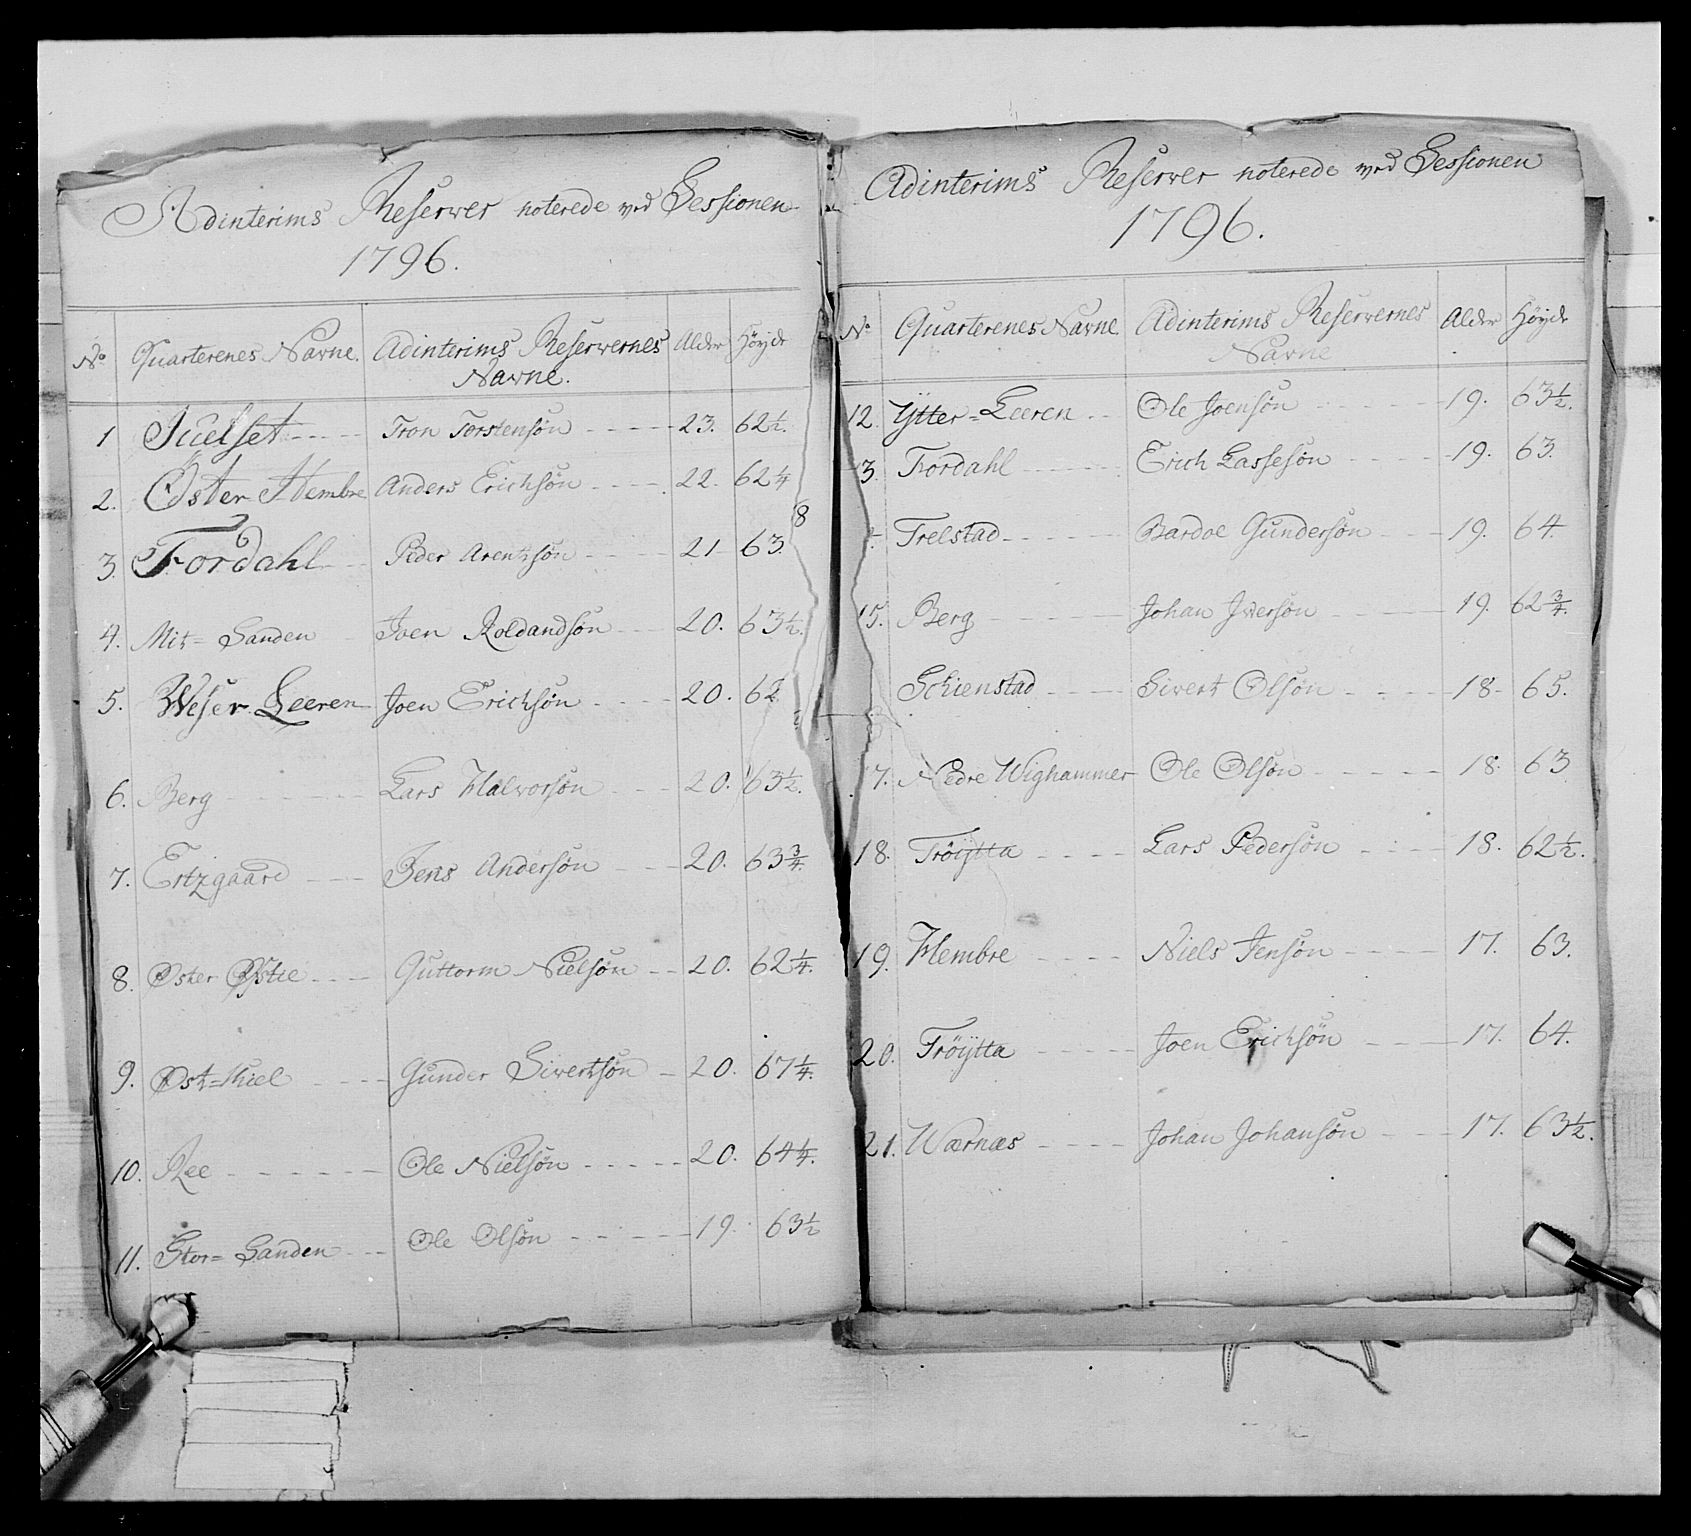 Adinterims Reserver noterede ved Sessionen
1796.
No Quarterenes Navne. Adinterims Reservernes Navne. Alder Höyde
1 Juelset 23. 62½. Tron Torstensøn
2. Öster Hembre Anders Erichsøn 22. 62¼
8
3. Fordahl Peder Arentzøn 21 63.
4. Mit= Sanden Joen Roldandsøn 20. 63½.
5. Weser Leeren Joen Erichsøn 20. 62
6. Berg Lars Halvorsøn 20. 63½.
7. Ertzgaard Jens Andersøn 20. 63¾.
8. Oster Guttorm Nielsøn 20. 62¼.
9. Gunder Sivertsøn 20. 67¼.
10. Ree Ole Nielsøn 20. 64¼.
11. Stor= Sanden Ole Olsøn 19. 63½
Adinterims Reserver noterede ved Sessionen
1796.
No Quarterenes Navne Adinterims Reservernes Navne Alder Höyde
12. Ytter=Leeren Ole Joensøn 19. 63½.
3. Fordahl Erich Lassesøn 19. 63.
Trelstad Bardoe Gundersøn 19. 64.
15. Berg Johan Iversøn 19. 62¾.
Schienstad Sivert Olsøn 18. 65.
7. Nedre Wighammer Ole Olsøn 18. 63
18. Tröÿtta Lars Pedersøn 18. 62½.
19. Hembre Niels Jensøn 17. 63.
20. Tröÿtta Joen Erichsøn 17. 64.
21. Wærnæs Johan Johansøn 17. 63½.